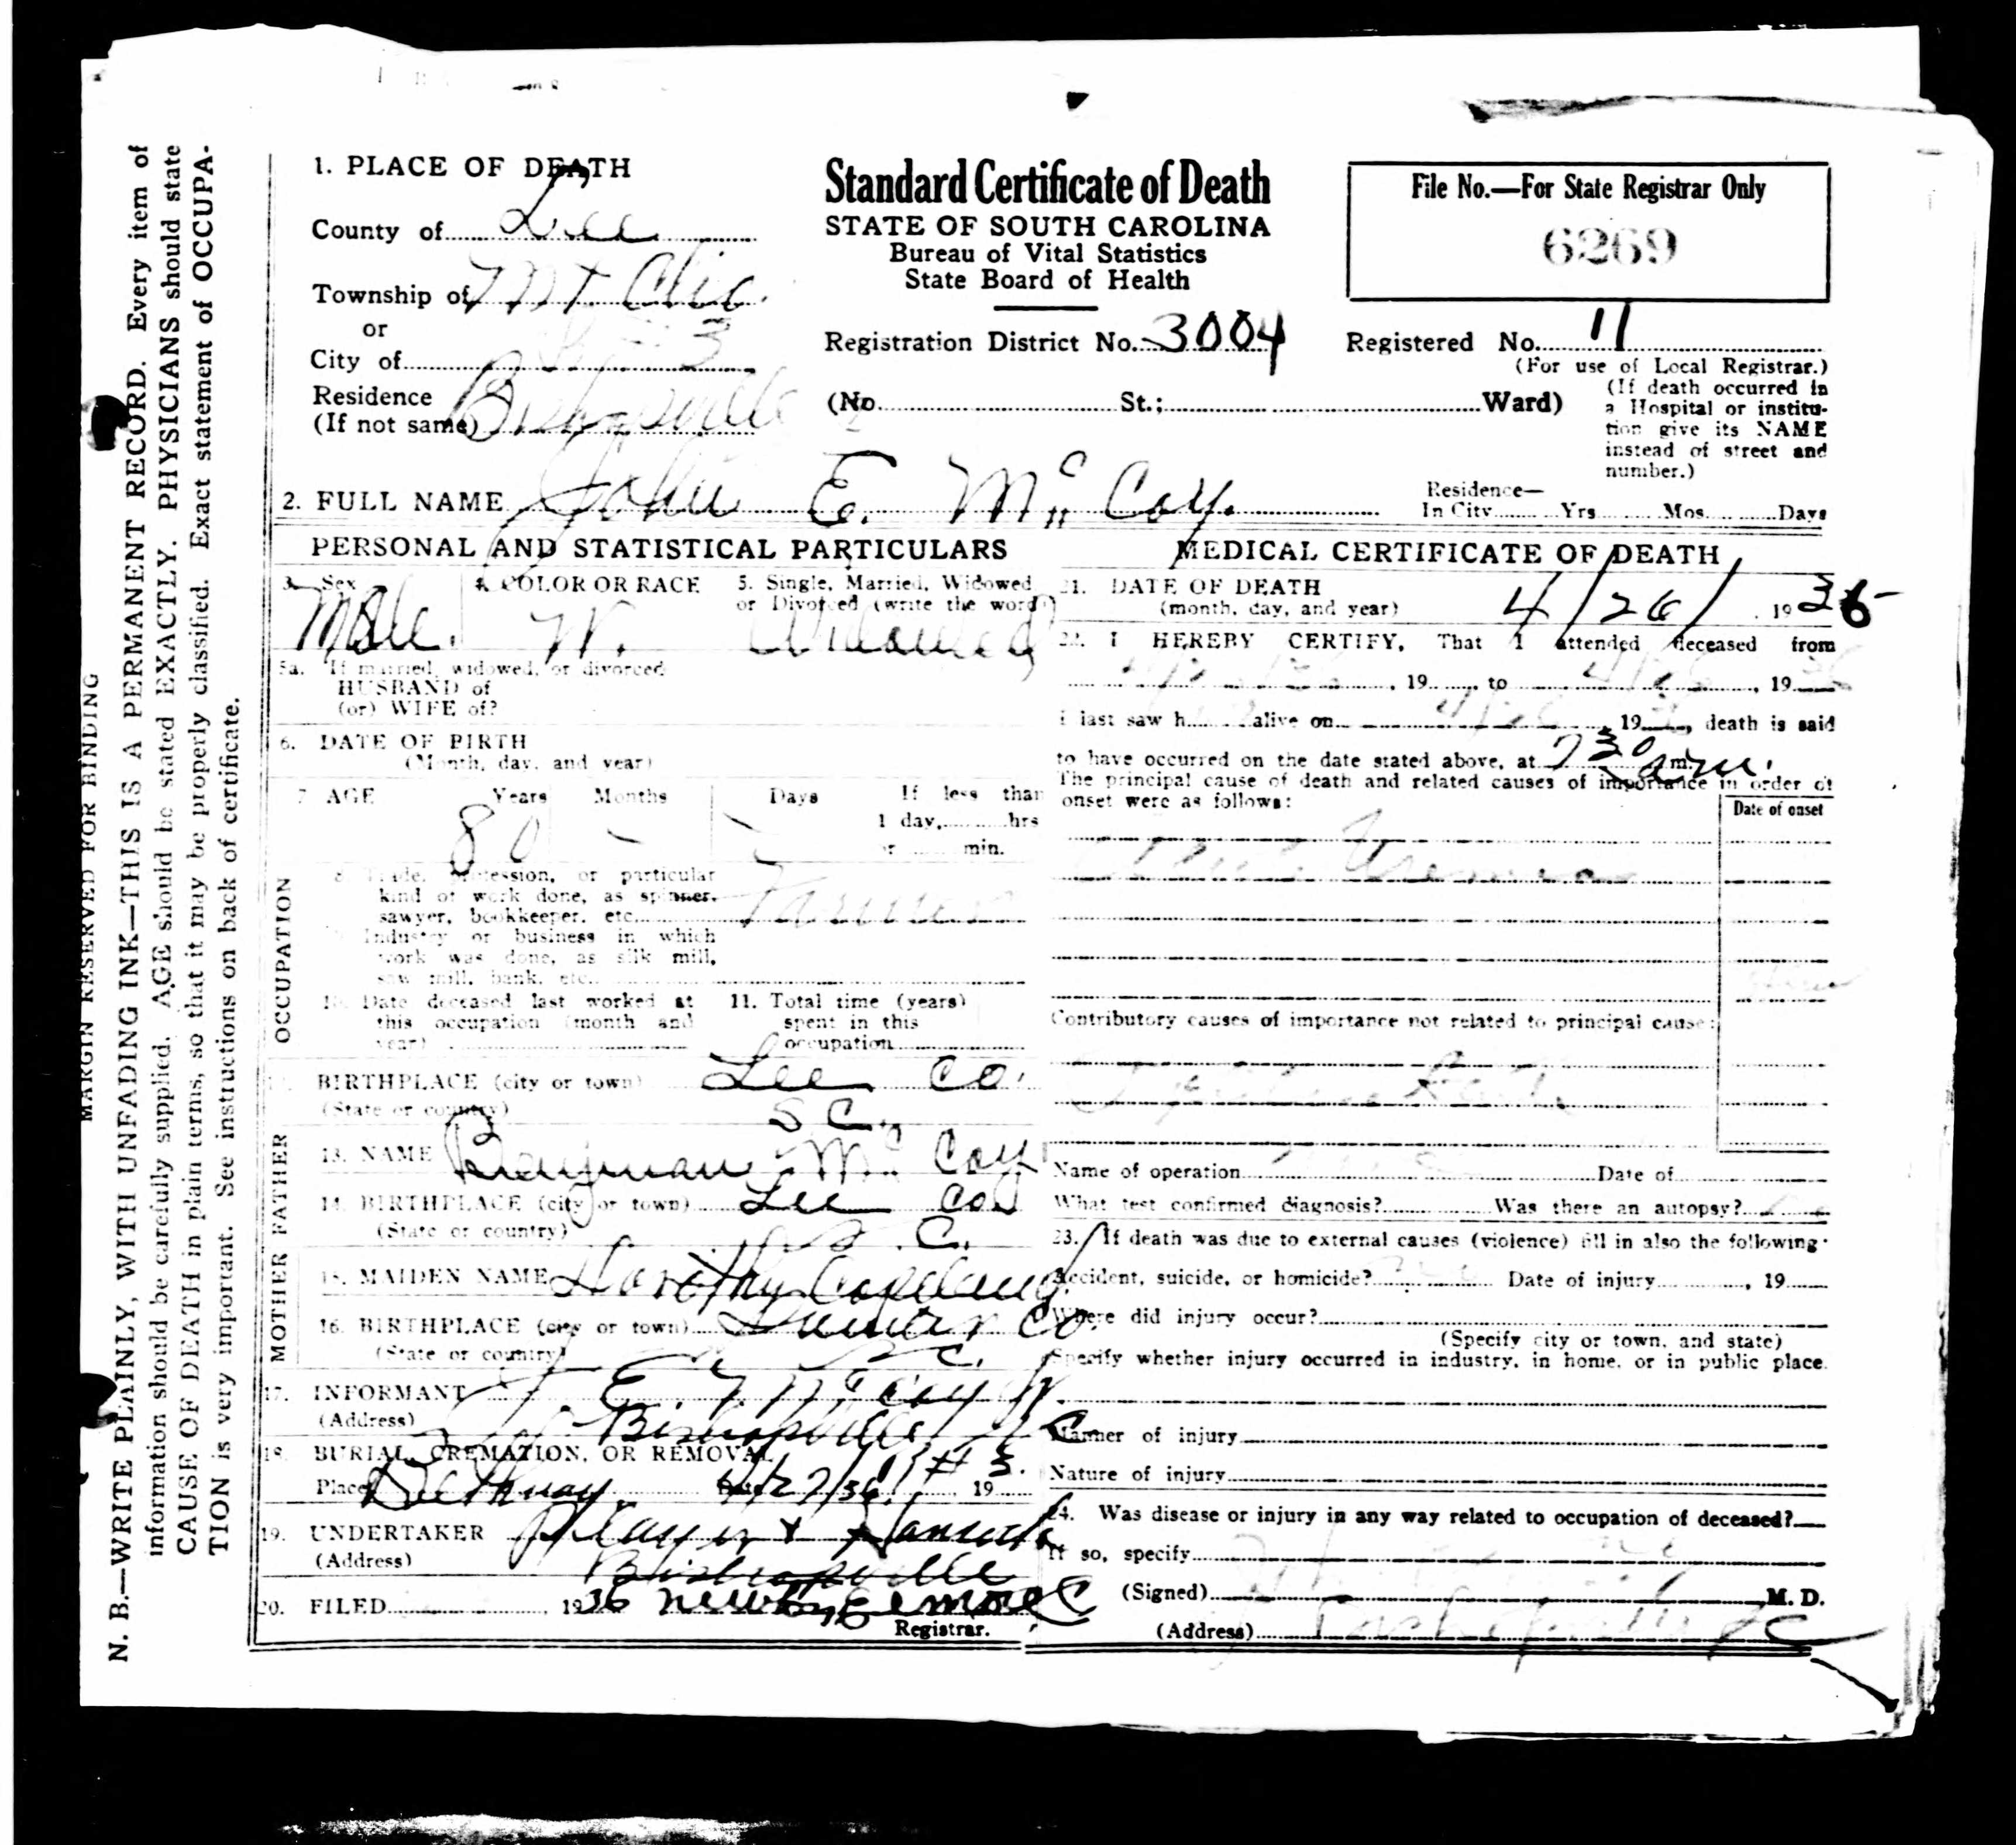 MARGIN RESERVED FOR BINDING
N. B.—WRITE PLAINLY, WITH UNFADING INK—THIS IS A PERMANENT RECORD. Every item of
information should be carefully supplied. AGE should be stated EXACTLY. PHYSICIANS should state
CAUSE OF DEATH in plain terms, so that it may be properly classified. Exact statement of OCCUPA-
TION is very important. See instructions on back of certificate.
1. PLACE OF DEATH
County of Lee
Township of Mt Clio
or
City of 3
Residence Bishopville
(If not same)
Standard Certificate of Death
STATE OF SOUTH CAROLINA
Bureau of Vital Statistics
State Board of Health
Registration District No. 3004
(No. St.; Ward)
File No.—For State Registrar Only
6269
Registered No. 11
(For use of Local Registrar.)
(If death occurred in
a Hospital or institu-
tion give its NAME
instead of street and
number.)
2. FULL NAME John E. McCoy.
Residence—
In City Yrs Mos. Days
PERSONAL AND STATISTICAL PARTICULARS
3. Sex 4. COLOR OR RACE 5. Single, Married, Widowed
or Divorced (write the word)
Male. W. Widowed
5a. If married, widowed, or divorced
HUSBAND of
(or) WIFE of?
6. DATE OF BIRTH
(Month, day, and year)
7 AGE Years Months Days If less than
1 day, hrs
or min.
80 - -
OCCUPATION
8. Trade, profession, or particular
kind of work done, as spinner,
sawyer, bookkeeper, etc. Farmer
Industry or business in which
work was done, as silk mill,
saw mill, bank, etc.
10. Date deceased last worked at
this occupation (month and
year)
11. Total time (years)
spent in this
occupation
BIRTHPLACE (city or town) Lee Co.
(State or country) S C.
MOTHER FATHER
13. NAME McCoy
14. BIRTHPLACE (city or town) Lee Co
(State or country) S. C.
15. MAIDEN NAME Dorothy Copeland
16. BIRTHPLACE (city or town) Sumter Co.
(State or country) S. C.
17. INFORMANT J E McCoy Jr
(Address) Bishopville
18. BURIAL, CREMATION, OR REMOVAL # 3.
Place Bethany Date 4/27/36 19
19. UNDERTAKER Player &
(Address) Bishopville
20. FILED 1936
Registrar.
MEDICAL CERTIFICATE OF DEATH
21. DATE OF DEATH
(month, day, and year) 4/26/ 1936
22. I HEREBY CERTIFY, That I attended deceased from
, 19 , to , 19
I last saw h alive on , 19 , death is said
to have occurred on the date stated above, at 7 30 am.
The principal cause of death and related causes of importance in order of
onset were as follows:
Date of onset
Uremia
Contributory causes of importance not related to principal cause:
Name of operation Date of
What test confirmed diagnosis? Was there an autopsy?
23. If death was due to external causes (violence) fill in also the following:
Accident, suicide, or homicide? Date of injury , 19
Where did injury occur?
(Specify city or town, and state)
Specify whether injury occurred in industry, in home, or in public place.
Manner of injury
Nature of injury
24. Was disease or injury in any way related to occupation of deceased?
If so, specify
(Signed) M. D.
(Address) S C